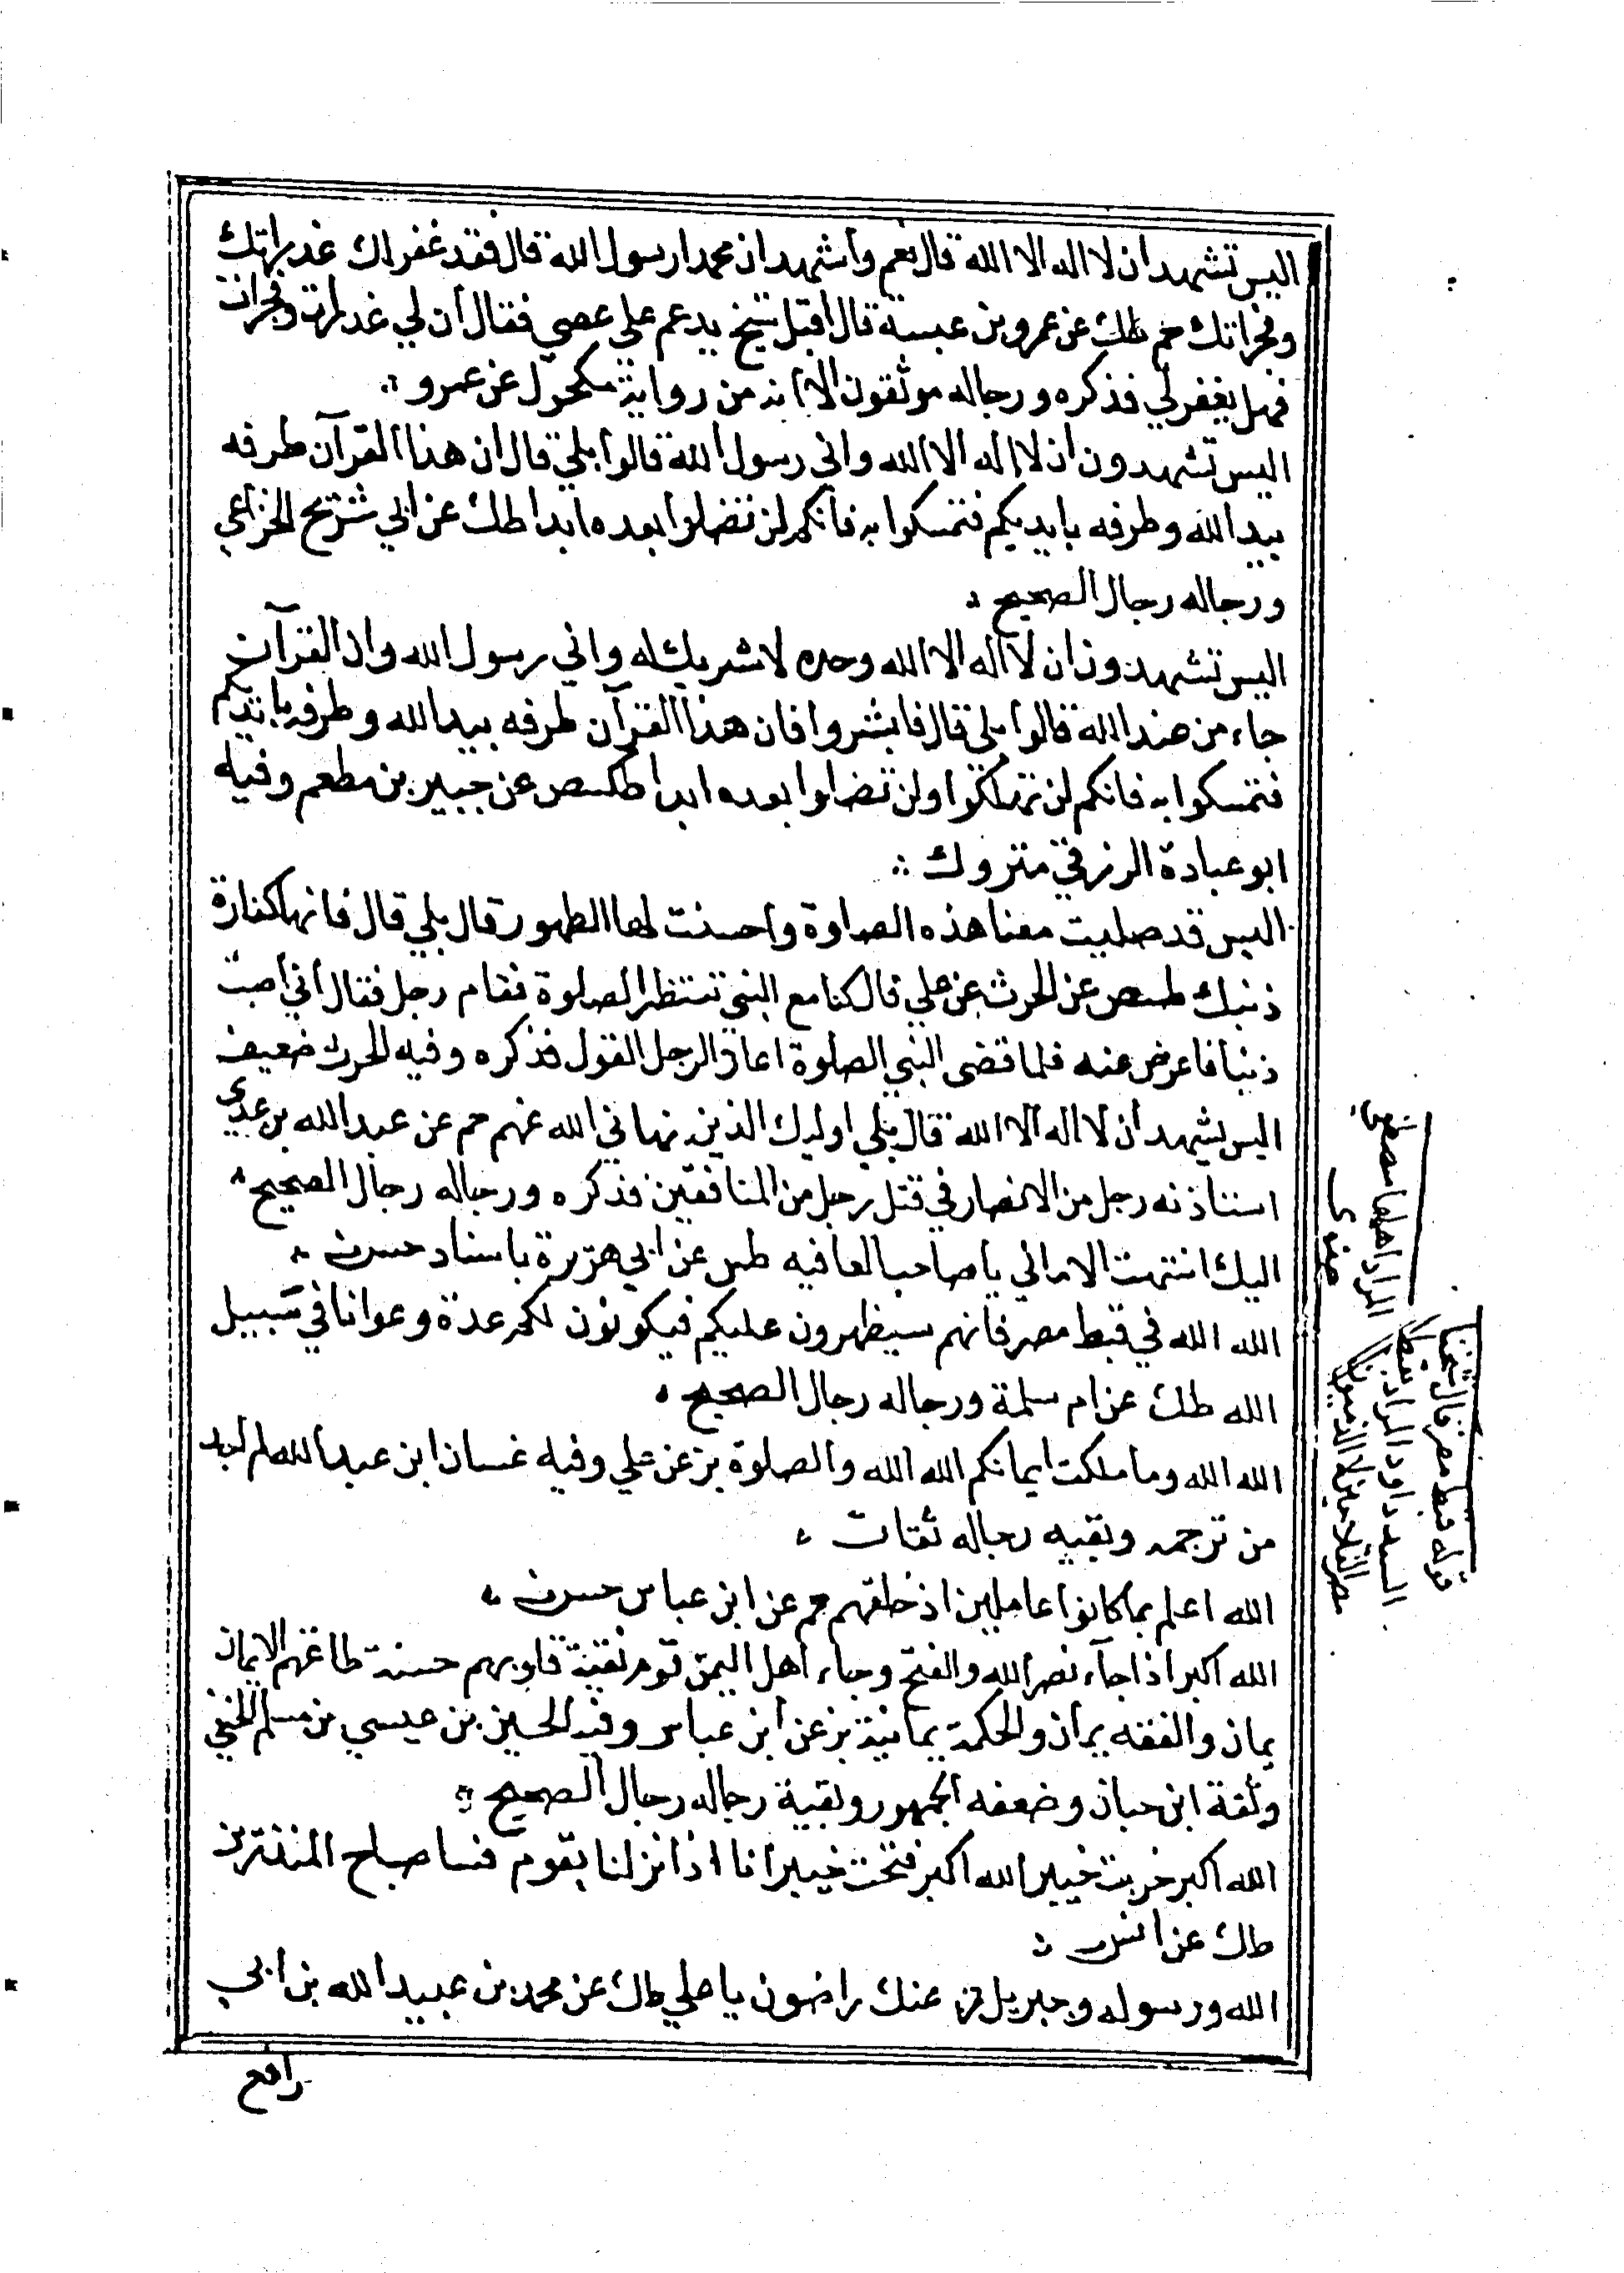 اليس تشهد ان لا اله الا الله قال نعم وأشهد ان محمدا رسول الله قال فقد غفر لك غدراتك
وفجراتك حم طك عن عمرو بن عبسة قال اقبل شيخ يدعم علي عصي فقال ان لي غدرات وفجرات
فهل يغفر لي فذكره ورجاله موثقون الا انه من رواية مكحول عن عمرو
اليس تشهدون ان لا اله الا الله واني رسول الله قالوا بلي قال ان هذا القرآن طرفه
بيد الله وطرفه بايديكم فتمسكوا به فانكم لن تضلوا بعده ابدا طك عن ابي شريح الخزاعي
ورجاله رجال الصحيح
اليس تشهدون ان لا اله الا الله وحده لا شريك له واني رسول الله وان القرآن
جاء من عند الله قالوا بلي قال فابشروا فان هذا القرآن طرفه بيد الله وطرفه بايديكم
فتمسكوا به فانكم لن تهلكوا ولن تضلوا بعده ابدا طكص عن جبير بن مطعم وفيه
ابو عبادة الزرقي متروك
اليس قد صليت معنا هذه الصلوة واحسنت لها الطهور قال بلي قال فانها كفارة
ذنبك طسص عن الحرث عن علي قال كنا مع النبي ننتظر الصلوة فقام رجل فقال اني اصبت
ذنبا فاعرض عنه فلما قضى النبي الصلوة اعاد الرجل القول فذكره وفيه الحرث ضعيف
اليس يشهد ان لا اله الا الله قال بلي اوليك الذين نهاني الله عنهم حم عن عبد الله بن عدي
استاذنه رجل من الانصار في قتل رجل من المنافقين فذكره ورجاله رجال الصحيح
اليك انتهت الاماني يا صاحب العافيه طس عن ابي هريرة باسناد حسن
الله الله في قبط مصر فانهم سيظهرون عليكم فيكونون لكم عدة وعوانا في سبيل
الله طك عن ام سلمة ورجاله رجال الصحيح
الله الله وما ملكت ايمانكم الله الله والصلوة بز عن علي وفيه غسان ابن عبد الله لم اجد
من ترجمه وبقيه رجاله ثقات
الله اعلم بما كانوا عاملين اذ خلقهم حم عن ابن عباس حسن
الله اكبر اذا جآء نصر الله والفتح وجاء اهل اليمن قوم نقية قلوبهم حسنة طاعتهم الايمان
يمان والفقه يمان والحكمة يمانية بز عن ابن عباس وفيه الحسين بن عيسي بن مسلم الحنفي
وثقة ابن حبان وضعفه الجمهور وبقية رجاله رجال الصحيح
الله اكبر خربت خيبر الله اكبر فتحت خيبر انا اذا نزلنا بقوم فسا صباح المنذرين
طك عن انس
الله ورسوله وجبريل عنك راضون يا علي طك عن محمد بن عبيد الله بن ابي
رافع
قوله قبط مصر قال شيخنا
السيد داود المراد
مصر
المراد اهلها